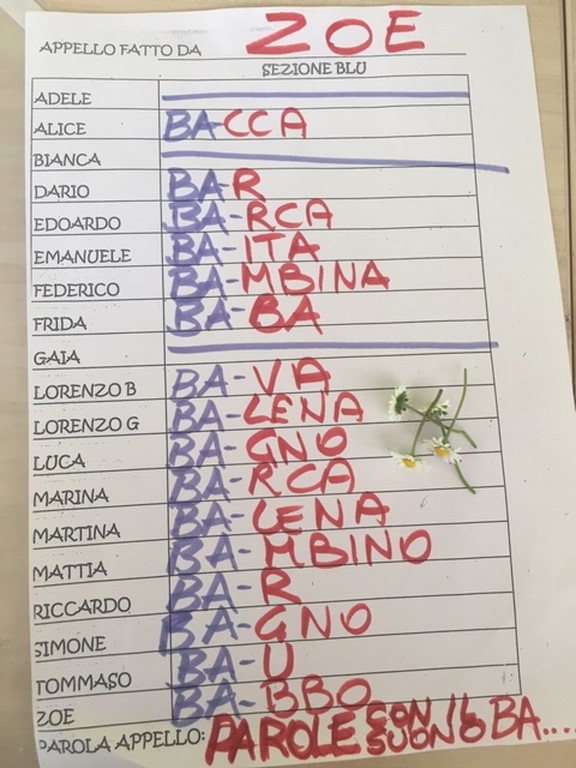 APPELLO FATTO DA ZOE
SEZIONE BLU
ADELE
ALICE BA-CCA
BIANCA
DARIO BA-R
EDOARDO BA-RCA
EMANUELE BA-ITA
FEDERICO BA-MBINA
FRIDA BA-BA
GAIA
LORENZO B BA-VA
LORENZO G BA-LENA
LUCA BA-GNO
MARINA BA-RCA
MARTINA BA-LENA
MATTIA BA-MBINO
RICCARDO BA-R
SIMONE BA-GNO
TOMMASO BA-U
ZOE BA-BBO
PAROLA APPELLO: PAROLE CON IL SUONO BA....